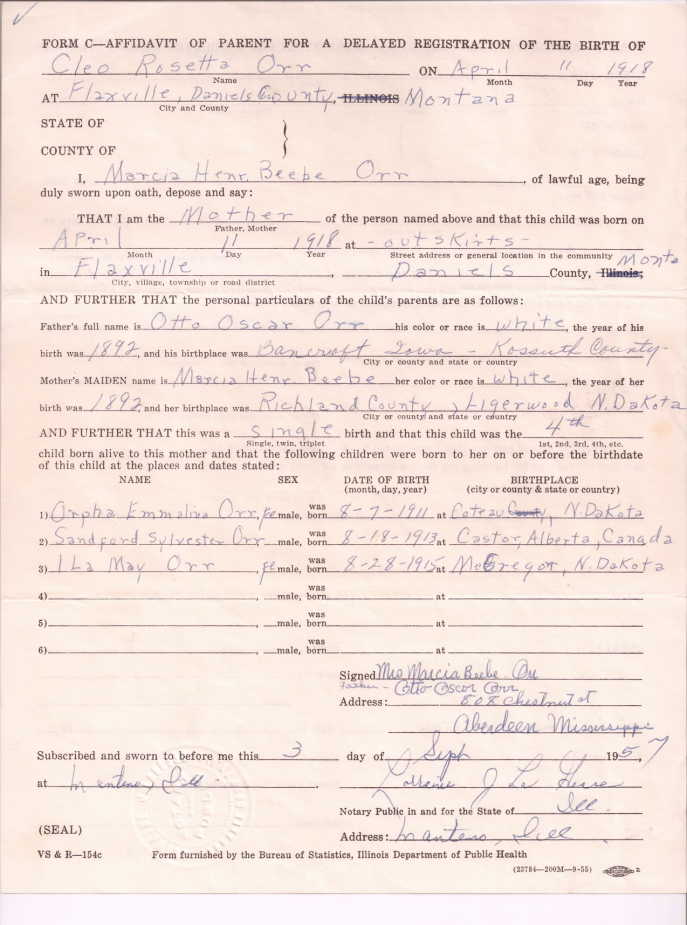 FORM C—AFFIDAVIT OF PARENT FOR A DELAYED REGISTRATION OF THE BIRTH OF
Cleo Rosetta Orr ON April 11 1918
Name Month Day Year
AT Flaxville, Daniels County, ILLINOIS Montana
City and County
STATE OF
COUNTY OF
I, Marcia Henr. Beebe Orr, of lawful age, being
duly sworn upon oath, depose and say:
THAT I am the Mother of the person named above and that this child was born on
Father, Mother
April 11 1918 at - outskirts -
Month Day Year Street address or general location in the community
in Flaxville, Daniels County, Illinois; Monta
City, village, township or road district
AND FURTHER THAT the personal particulars of the child's parents are as follows:
Father's full name is Otto Oscar Orr his color or race is white, the year of his
birth was 1892, and his birthplace was Bancroft Iowa - Kossuth County -
City or county and state or country
Mother's MAIDEN name is Marcia Henr. Beebe her color or race is white, the year of her
birth was 1892, and her birthplace was Richland County, Ligerwood N. Dakota
City or county and state or country
AND FURTHER THAT this was a single birth and that this child was the 4th
Single, twin, triplet 1st, 2nd, 3rd, 4th, etc.
child born alive to this mother and that the following children were born to her on or before the birthdate
of this child at the places and dates stated:
NAME SEX DATE OF BIRTH BIRTHPLACE
(month, day, year) (city or county & state or country)
1) Orpha Emmaline Orr, female, was born 8-7-1911 at Coteau County, N. Dakota
2) Sandford Sylvester Orr male, was born 8-18-1913 at Castor, Alberta, Canada
3) ILa May Orr, female, was born 8-28-1915 at McGregor, N. Dakota
4) , male, was born at
5) , male, was born at
6) , male, was born at
Signed Mrs Marcia Beebe Orr
Father - Otto Oscar Orr
Address: 508 Chestnut st
Aberdeen Mississippi
Subscribed and sworn to before me this 3 day of Sept 1957
at Manteno, Ill. Lorraine J La
Notary Public in and for the State of Ill.
(SEAL) Address: Manteno, Ill
VS & R—154c Form furnished by the Bureau of Statistics, Illinois Department of Public Health
(23784—200M—9-55) 2